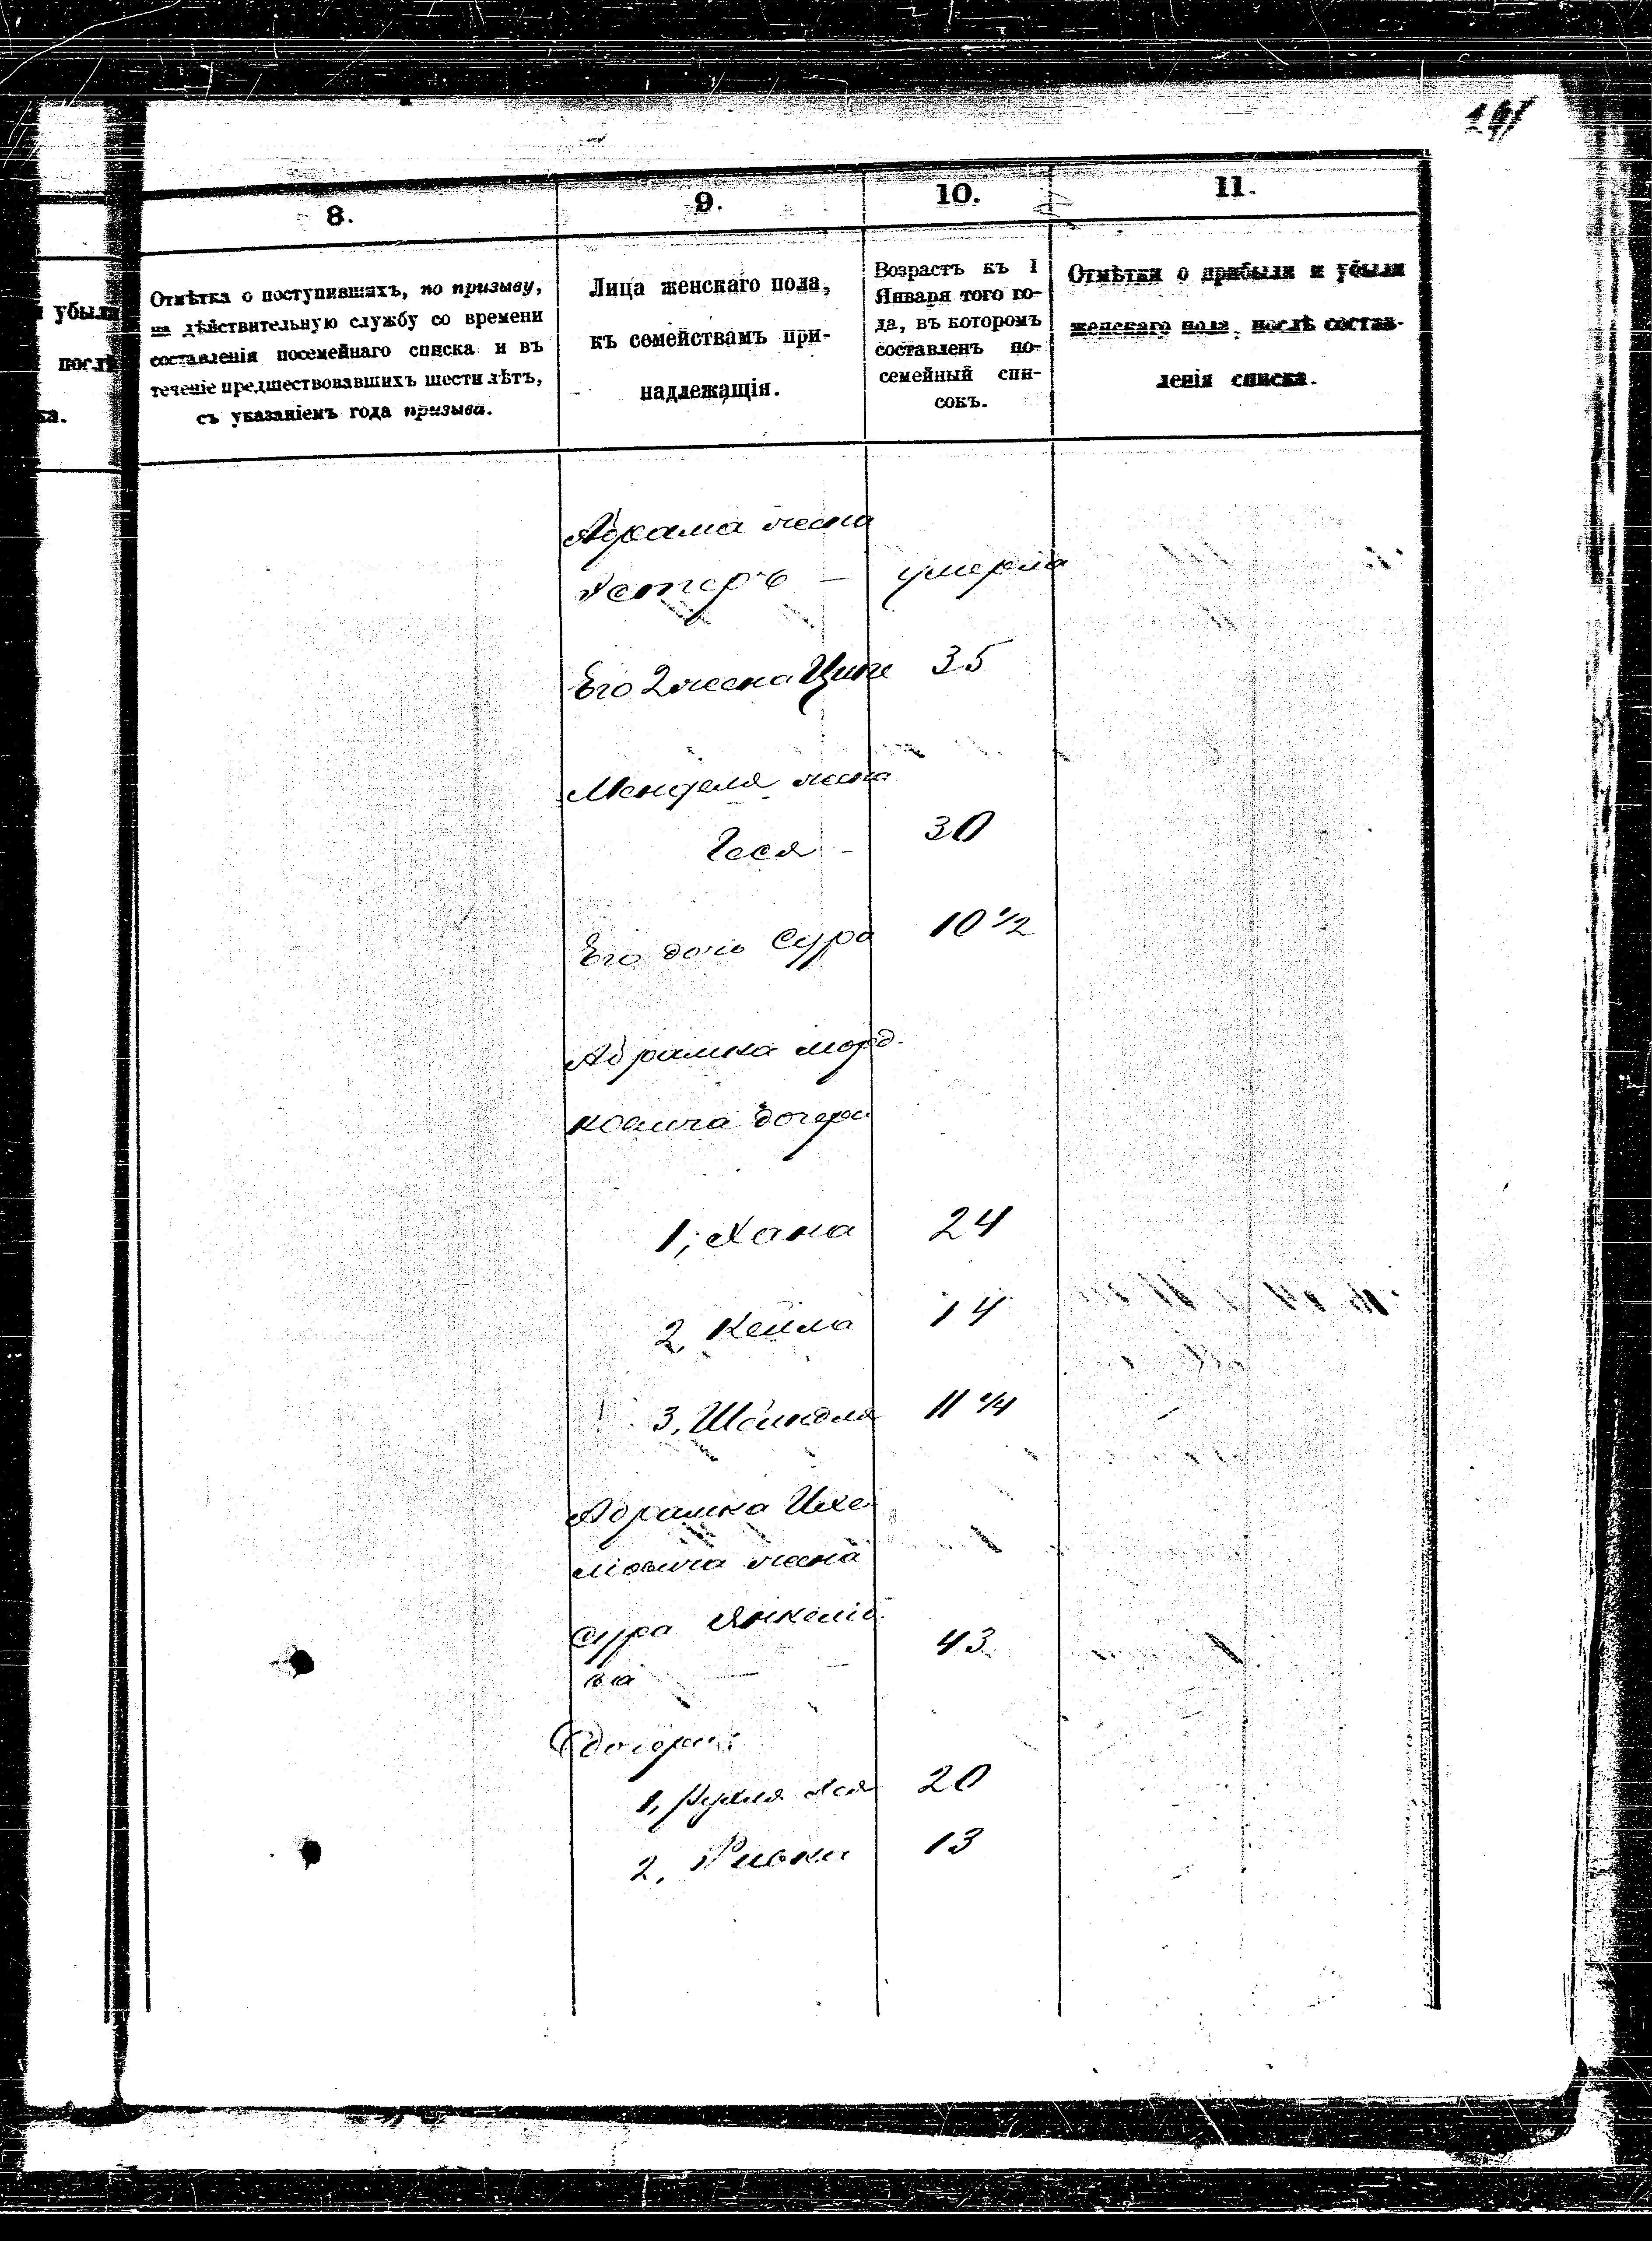 8.
9.
10.
11.
убыли
послѣ
ка.
Отмѣтка о поступившихъ, по призыву,
на дѣйствительную службу со времени
составленія посемейнаго списка и въ
теченіе предшествовавшихъ шести лѣтъ,
съ указаніемъ года призыва.
Лица женскаго пола,
къ семействамъ при-
надлежащія.
Возрастъ къ 1
Января того го-
да, въ которомъ
составленъ по-
семейный спи-
сокъ.
Отмѣтки о прибыли и убыли
женскаго пола, послѣ состав-
ленія списка.
Абрама жена
Эстеръ — умерла
Его 2 жена 35
Менделя жена
Геся - 30
Его дочь Сура 10 1/2
Абрамка Морд-
ковича дочери
1, Хана 24
2, Кейла 14
3, Шейндля 11 1/4
Абрамка Ихе-
ліовича жена
Сура Янкеліо-
ва — 43
Дочери:
1, Рухля 20
2, Ривка 13